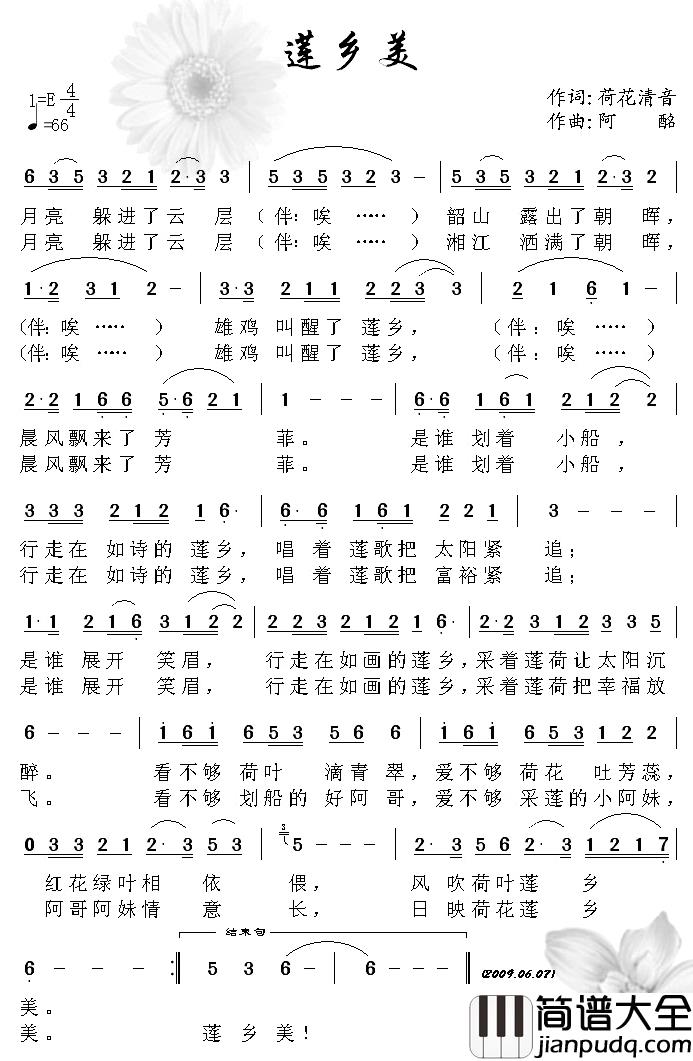 莲乡美
1=E 4/4
♩=66
作词:荷花清音
作曲:阿 酪
6 3 5 3 2 1 2·3 3 | 5 3 5 3 2 3 - | 5 3 5 3 2 1 2·3 2 |
月亮 躲进了云 层(伴:唉……)韶山 露出了朝 晖,
月亮 躲进了云 层(伴:唉……)湘江 洒满了朝 晖,
1·2 3 1 2 - | 3·3 2 1 2 2 2 3 3 | 2 1 6 1 - |
(伴:唉……) 雄鸡 叫醒了 莲乡, (伴:唉……)
(伴:唉……) 雄鸡 叫醒了 莲乡, (伴:唉……)
2·2 1 6 6 5·6 2 1 | 1 - - - | 6·6 1 6 1 2 1 2 2 |
晨风飘来了 芳 菲。 是谁 划着 小船,
晨风飘来了 芳 菲。 是谁 划着 小船,
3 3 3 2 1 2 1 6· | 6·6 1 6 1 2 2 1 | 1 - - - |
行走在 如诗的 莲乡, 唱 着 莲歌把 太阳紧 追;
行走在 如诗的 莲乡, 唱 着 莲歌把 富裕紧 追;
1·1 2 1 6 3 1 2 2 | 3 3 3 2 1 2 1 6· | 2·2 3 1 2 3 2 3 5 |
是谁 展开 笑眉, 行走在如画的莲乡,采着莲荷让太阳沉
是谁 展开 笑眉, 行走在如画的莲乡,采着莲荷把幸福放
6 - - - | 1 6 1 6 5 3 5 6 6 | 1 6 1 6 5 3 1 2 2 |
醉。 看不够 荷叶 滴青 翠,爱不够 荷花 吐芳蕊,
飞。 看不够 划船的 好阿 哥,爱不够 采莲的小阿妹,
0 3 3 2 1 2·3 5 3 | 3 5 - - - | 2·3 5 6 2·3 1 2 1 7 |
红花绿叶相 依 偎, 风 吹荷叶莲 乡
阿哥阿妹情 意 长, 日 映荷花莲 乡
结束句
6 - - - :| 5 3 6 - | 6 - - - ‖ (2009.06.07)
美。
美。 莲 乡 美!
简谱大全
jianpudq.com